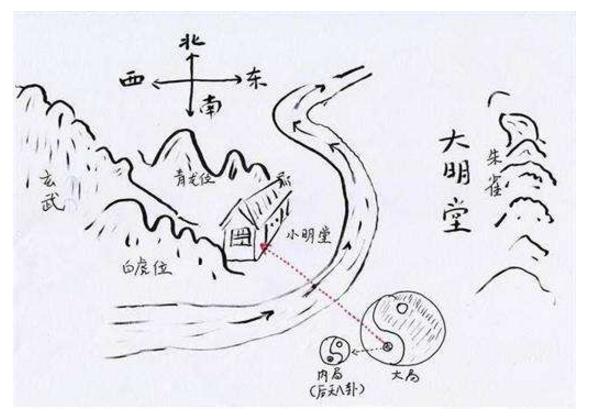 北
西 东
南
大明堂
朱雀
青龙位
玄武
小明堂
白虎位
内局
(后天八卦)
大局